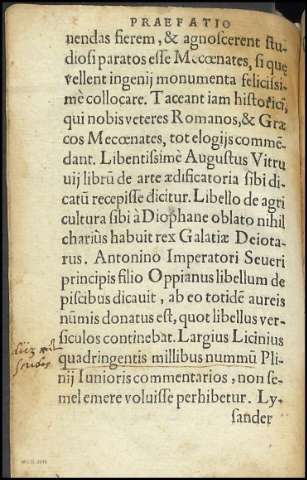 PRAEFATIO
nendas fierem, & agnoscerent stu-
diosi paratos esse Mecœnates, si quę
vellent ingenij monumenta feliciſsi-
mè collocare. Taceant iam historici,
qui nobis veteres Romanos, & Græ
cos Mecœnates, tot elogijs commẽ-
dant. Libentissimè Augustus Vitru
uij librũ de arte ædificatoria sibi di-
catũ recepisse dicitur. Libello de agri
cultura sibi à Diophane oblato nihil
charius habuit rex Galatiæ Deiota-
rus. Antonino Imperatori Seueri
principis filio Oppianus libellum de
piscibus dicauit, ab eo totidẽ aureis
nũmis donatus est, quot libellus ver-
siculos continebat. Largius Licinius
quadringentis millibus nummũ Pli-
nij Iunioris commentarios, non se-
mel emere voluisse perhibetur. Ly-
sander